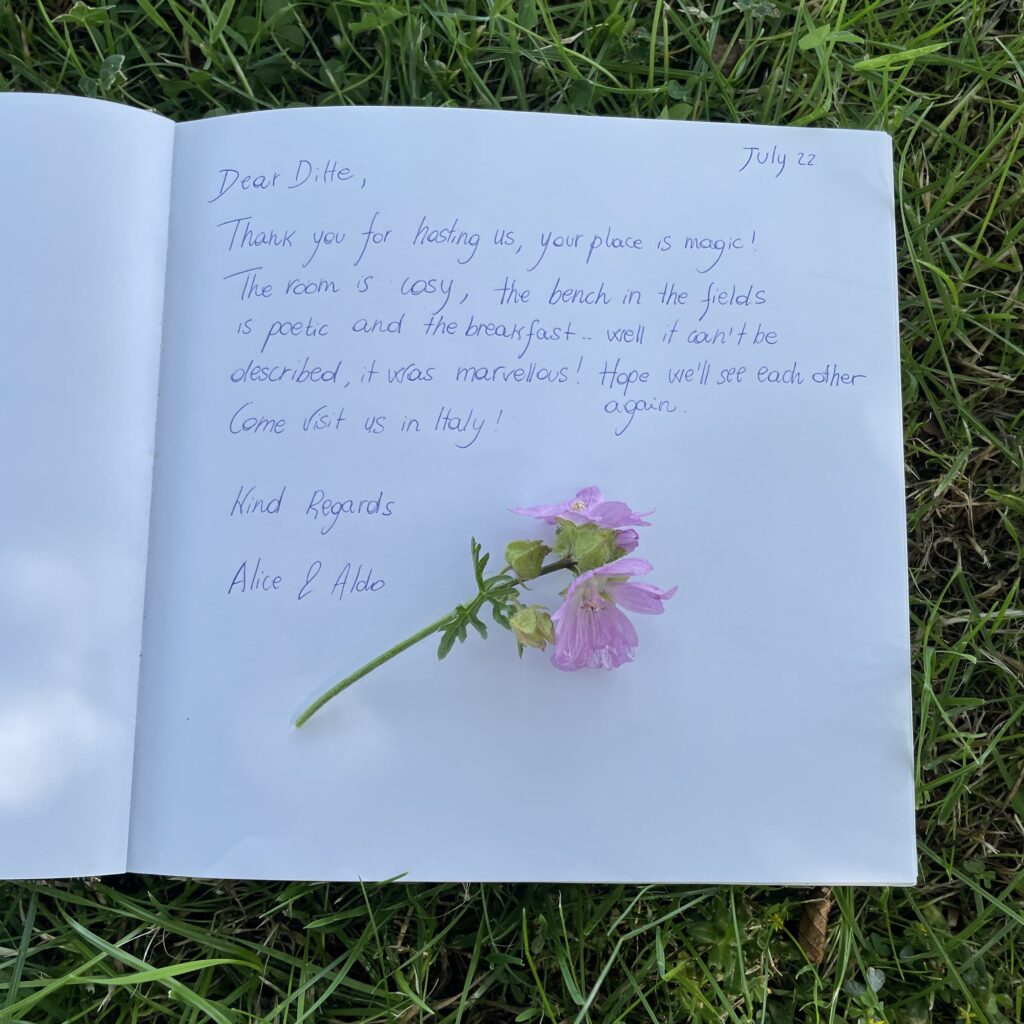 July 22
Dear Ditte,
Thank you for hosting us, your place is magic!
The room is cosy, the bench in the fields
is poetic and the breakfast.. well it can't be
described, it was marvellous! Hope we'll see each other
again.
Come visit us in Italy!
Kind Regards
Alice & Aldo